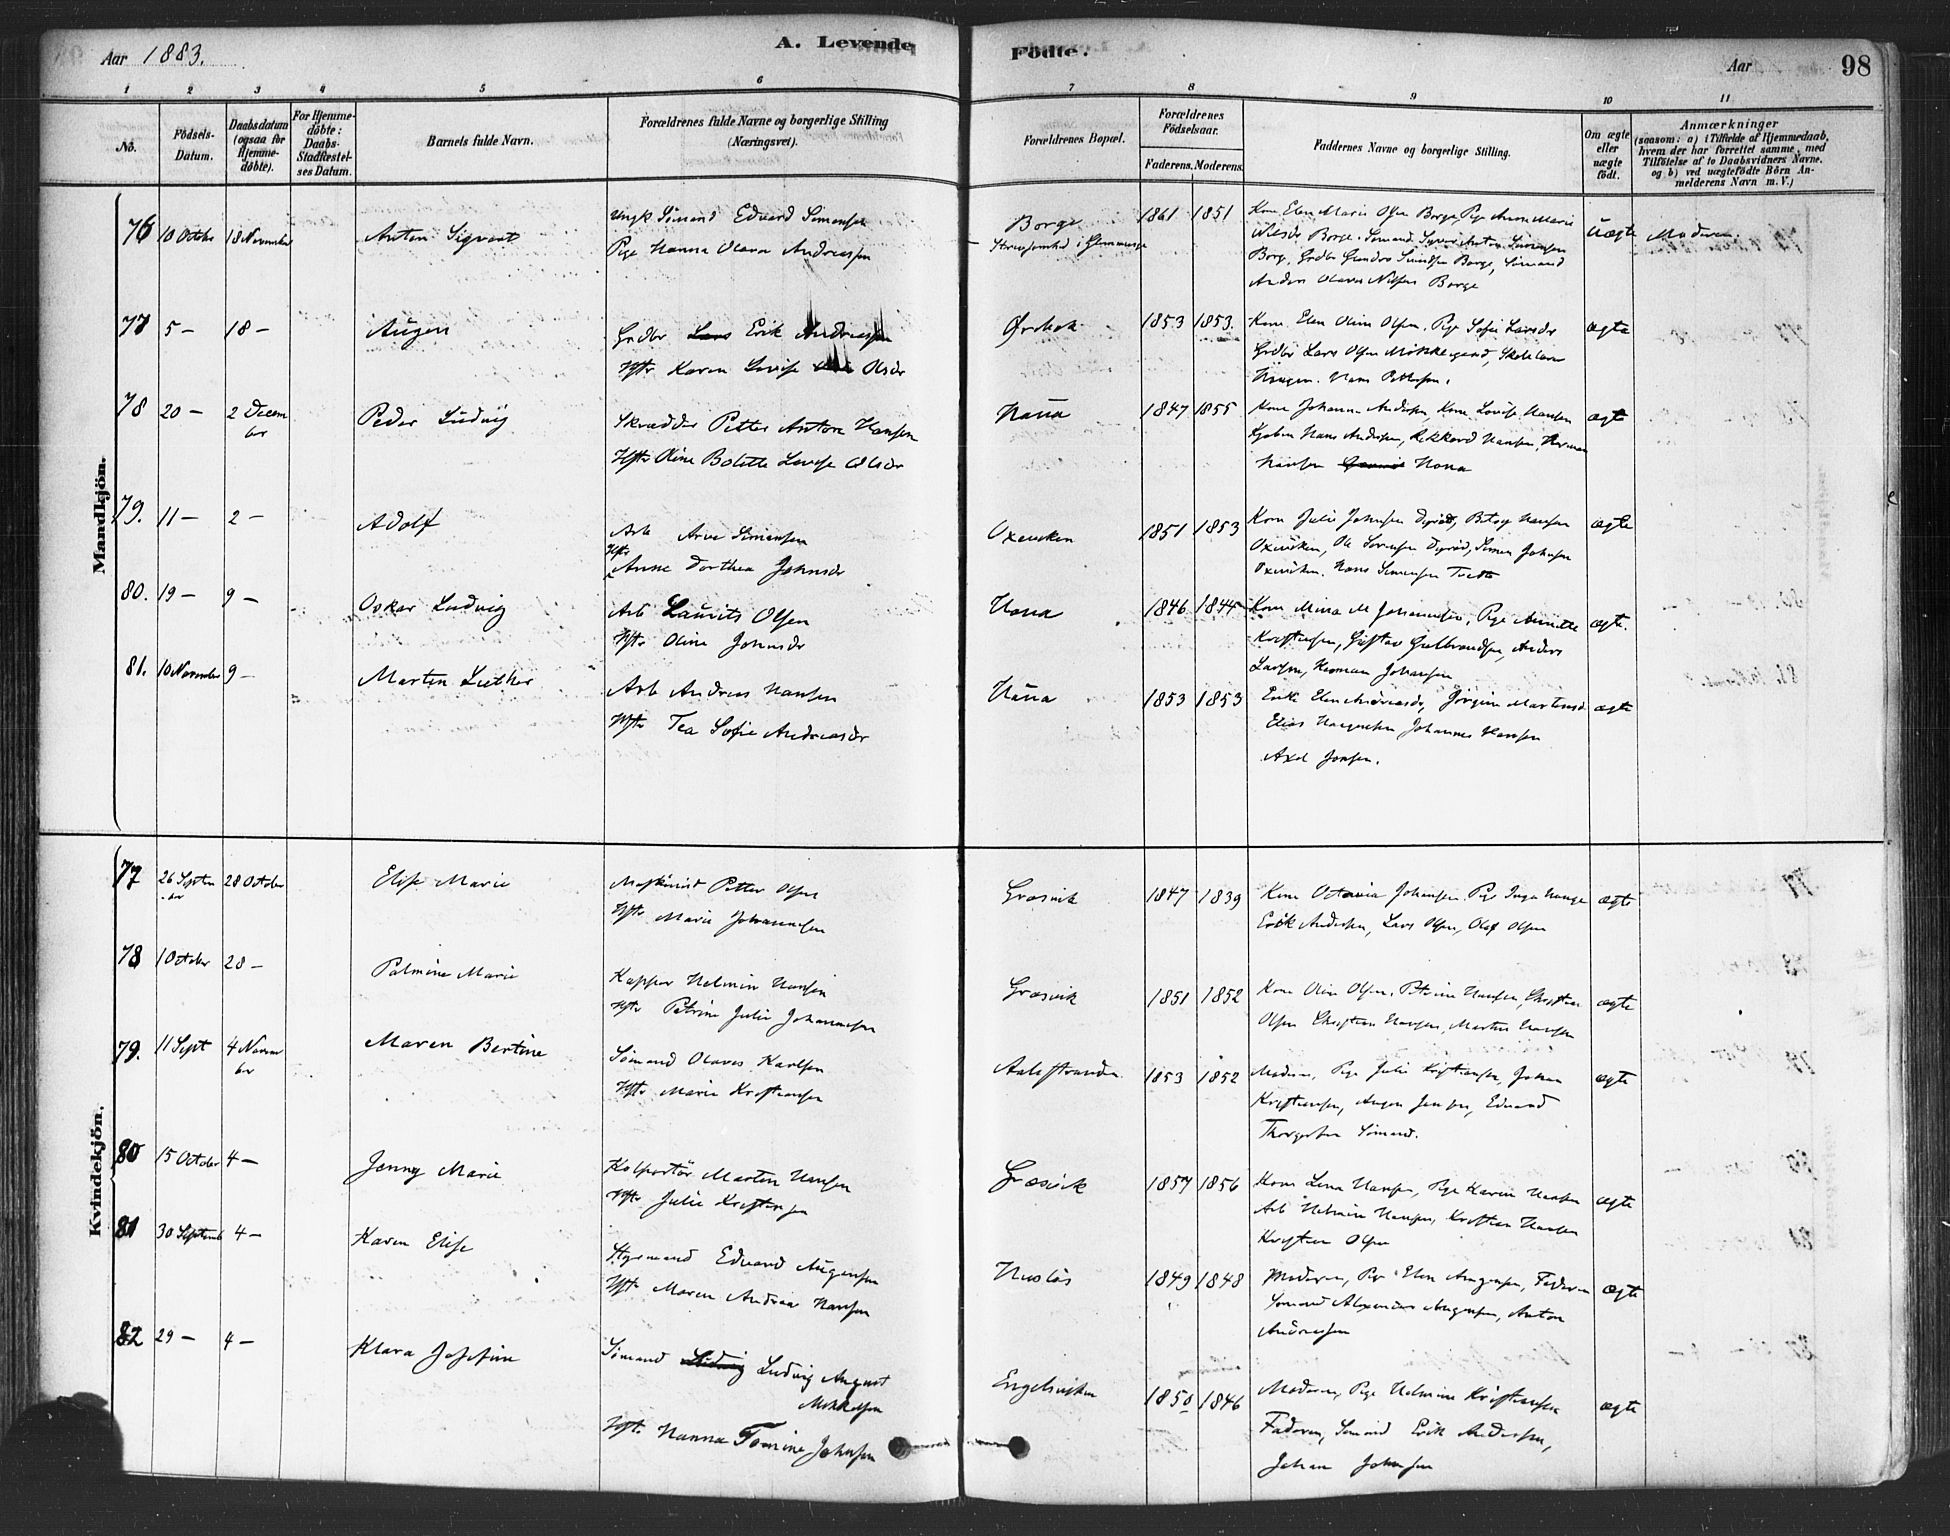 Aar 1883.
A. Levende Fødte.
Aar
98
1 2 3 4 5 6 7 8 9 10 11
No.
Fødsels-
Datum.
Daabsdatum
(ogsaa for
Hjemme-
døbte).
For Hjemme-
døbte:
Daabs-
Stadfæstel-
ses Datum.
Barnets fulde Navn.
Forældrenes fulde Navne og borgerlige Stilling
(Næringsvei).
Forældrenes Bopæl.
Forældrenes
Fødselsaar.
Faderens. Moderens.
Faddernes Navne og borgerlige Stilling.
Om ægte
eller
uægte
født.
Anmærkninger
(saasom: a) i Tilfælde af Hjemmedaab,
hvem der har forrettet samme, med
Tilføielse af to Daabsvidners Navne.
og b) ved uægtefødte Børn An-
melderens Navn m. V.)
Mandkjön.
76 10 Octbr 18 November Anton Sigvart
Ungk Sømand Edvard Simensen
Pige Hanna Olava Andreassen
Borge
1861 1851
Kone Elen Marie Olsen Borge, Pige Anne Marie
Borge. Sømand
Borge, Grdbr Borge, Sømand
Anders Olaves Nilsen Borge
Uægte Moderen.
77 5 – 18 – Augen
Grdbr Lars Erik Andreassen
Hstr Karen Lovise Olsdr
Ørebek
1853 1853.
Kone Elen Oline Olsen. Pige Sofie Larsdr
Grdbr Lars Olsen Skolelærer
Haugen. Hans Pettersen.
ægte
78 20 – 2 Decem
ber
Peder Ludvig
Skrædder Petter Anton Hansen
Hstr Oline Bolette Lovise Olsdr
Haua
1847 1855
Kone Johanne Andersen Kone Lovise Hansen
Hans Andersen, Rikkard Hansen, Herman
Hansen Hona
ægte
79. 11 – 2 – Adolf
Arb Arve Simensen
Hstr
Anne Dorthea Johnsdr
Oxeviken
1851 1853
Kone Julie Johnsen Dyrød, Betsy Hansen
Oxeviken, Ole Sørensen Dyrød, Simen Johnsen
Oxeviken. Hans Simensen
ægte
80. 19 – 9 – Oskar Ludvig
Arb Laurits Olsen
Hstr Oline Johnsdr
Hona
1846 1844
Kone Mina M Johannesen, Pige Annette
Kristiansen, Gustav Gulbrandsen, Anders
Larsen, Herman Johansen
ægte.
81. 10 November 9 – Marten Luther
Arb Andreas Hansen
Hstr Tea Sofie Andreasdr
Haua
1853 1853
Enk Elen Andreasdr, Jørgine Martinsd
Elias Johannes Hansen
Axel Jonsen.
ægte
Kvindekjön.
77 26 Septem
ber
28 October Elise Marie
Maskinist Petter Olsen
Hstr Marie Johannesen
Græsvik
1847 1839
Kone Octavia Johansen. Pige Inga Hauge
Erik Andersen, Lars Olsen, Olaf Olsen
ægte
78 1 October 28 – Palmine Marie
Kapper Helmin Hansen
Hstr Petrine Julie Johannesen
Græsvik
1851 1852
Kone Oline Olsen, Petrine Hansen, Christian
Olsen Christian Hansen, Martin Hansen
ægte
79. 11 Sept 4 Novem
ber
Maren Bertine
Sømand Olaves Karlsen
Hstr Marie Kristiansen
Aaleststranden
1853 1852
Moderen, Pige Julie Kristiansen, Johan
Kristiansen, Augen Jensen, Edvard
Thorgersen Sømand.
ægte
80 15 October 4 – Jenny Marie
Kolportør Marten Hansen
Hstr Julie Kristensen
Græsvik
1857 1856
Kone Lina Hansen, Pige Karin Hansen
Arb Helmin Hansen, Kristian Hansen
Kristian Olsen
ægte
81 30 Septemb 4 – Karen Elise
Styrmand Edvard Augensen
Hstr Maren Andrea Hansen
Husløs
1849 1848
Moderen, Pige Elen Augensen, Faderen
Sømand Alexander Augensen, Anton
Andreassen
ægte
82 29 – 4 – Klara Josefine
Sømand Ludvig Ludvig August
Mikkelsen
Hstr. Hanna Tomine Johnsen
Engelsviken
1850 1846
Moderen, Pige Helmine Kristiansen
Faderen, Sømand Erik Andersen,
Johan Johnsen
ægte